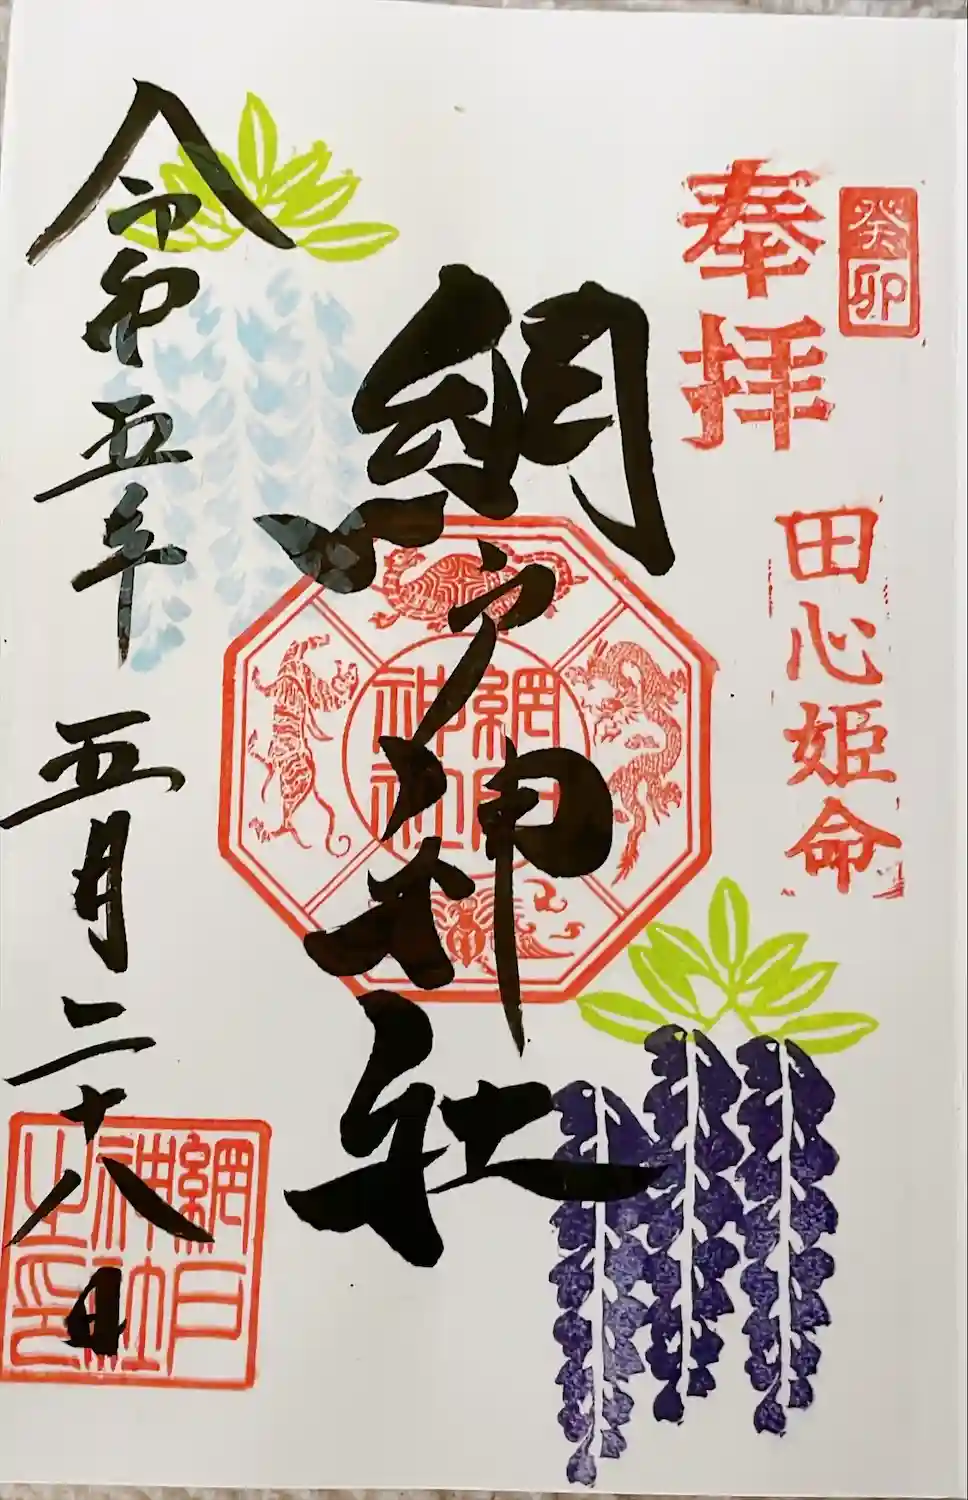 癸卯
奉拝
田心姫命
網戸神社
網戸神社
令和五年 五月二十八日
網戸神社之印